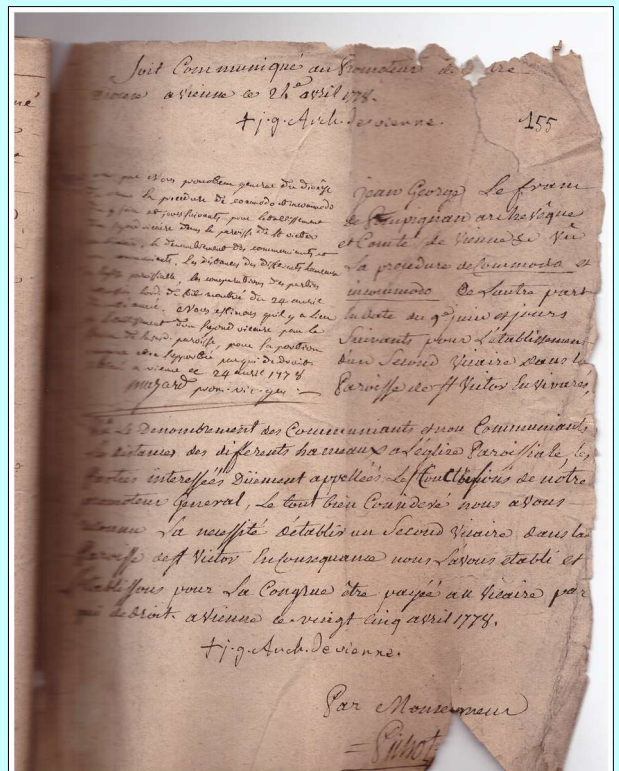 Soit Communiqué au Promoteur
a vienne ce 24 avril 1778.
+ j. g. Arch. de vienne.
155
par Nous promoteur general du diocese
la procedure de commodo et incommodo
9 juin et jours suivants pour l'etablissement
second vicaire dans la paroisse de St victor
le denombrement des communiants et
communiants. Les distances des differents hameaux
Eglise paroissiale, les comparutions des parties
du 24 avril
Nous estimons qu'il y a lieu
l'etablissement d'un second vicaire pour le
de lad. paroisse, pour la portion
etre supportée par qui de droit
a vienne ce 24 avril 1778
prom.
jean George Le franc
de Pompignan archevêque
et Comte de Vienne &c Vû
La procedure de Commodo et
incommodo De Lautre part
en date du 9e juin et jours
Suivants pour L'établissement
d'un Second Vicaire dans la
Paroisse de St Victor En Vivarés,
Le Denombrement des Communiants et non Communiants
La distance des differents hameaux a L'église Paroissiale, les
Parties interessées Düement appellées Les Conclusions de notre
promoteur General, Le tout bien Consideré nous avons
reconnu La necessité d'établir un Second Vicaire dans la
Paroisse de St Victor En Consequance nous L'avons etabli et
L'établissons pour La Congrue être payée au Vicaire par
qui de droit. a Vienne ce vingt cinq avril 1778.
+ j. g. Arch. De vienne.
Par Monseigneur